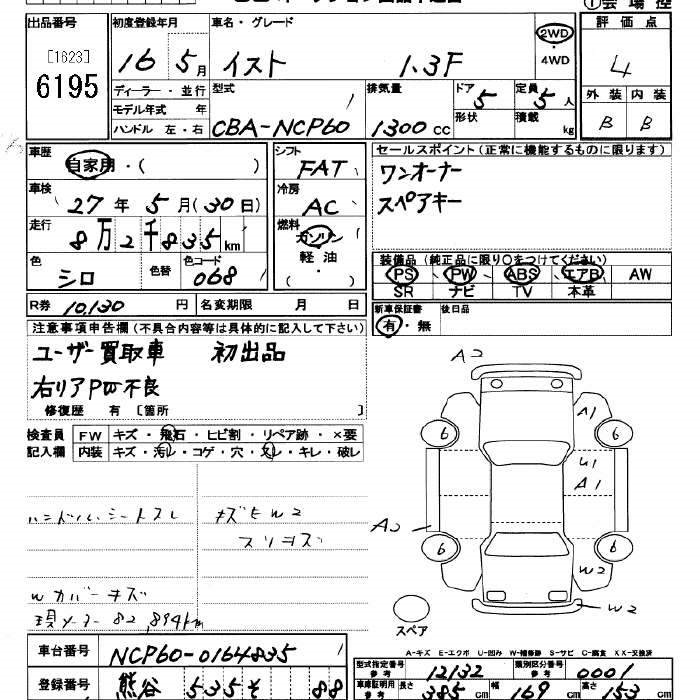 出品番号
[1623]
6195
初度登録年月
16 5月
車名・グレード
イスト 1.3F
2WD
4WD
評価点
4
外装 内装
B B
ディーラー・並行
モデル年式 年
ハンドル 左・右
型式
CBA-NCP60
排気量
1300 cc
ドア 5
形状
定員 5 人
積載 kg
車歴
自家用・( )
車検
27年 5月(30日)
走行
8万2千835km
色
シロ
色替
色コード
068
R券 10,130 円
名変期限 月 日
シフト
FAT
冷房
AC
燃料
ガソリン
軽油
( )
セールスポイント(正常に機能するものに限ります)
ワンオーナー
スペアキー
装備品 (純正品に限り○をつけてください)
PS PW ABS エアB AW
SR ナビ TV 本革
新車保証書
有・無
後日品
注意事項申告欄(不具合内容等は具体的に記入して下さい)
ユーザー買取車 初出品
右リアPW不良
修復歴 有 [箇所 ]
検査員
記入欄
FW キズ・飛石・ヒビ割・リペア跡・×要
内装 キズ・汚レ・コゲ・穴・スレ・キレ・破レ
ハンドル、シートスレ
キズモW2
スリキズ
Wカバーキズ
現メーター 82,894km
A2
A1
6
6
U1
A1
A2
6
6
W2
W2
スペア
A-キズ E-エクボ U-凹み W-補修跡 S-サビ C-腐食 XX-交換済
車台番号
NCP60-0164835
登録番号
熊谷 535 そ 88
型式指定番号
参考
12132
類別区分番号
参考
0001
車庫証明用
参考
長さ 385 cm
幅 169 cm
高さ 153 cm